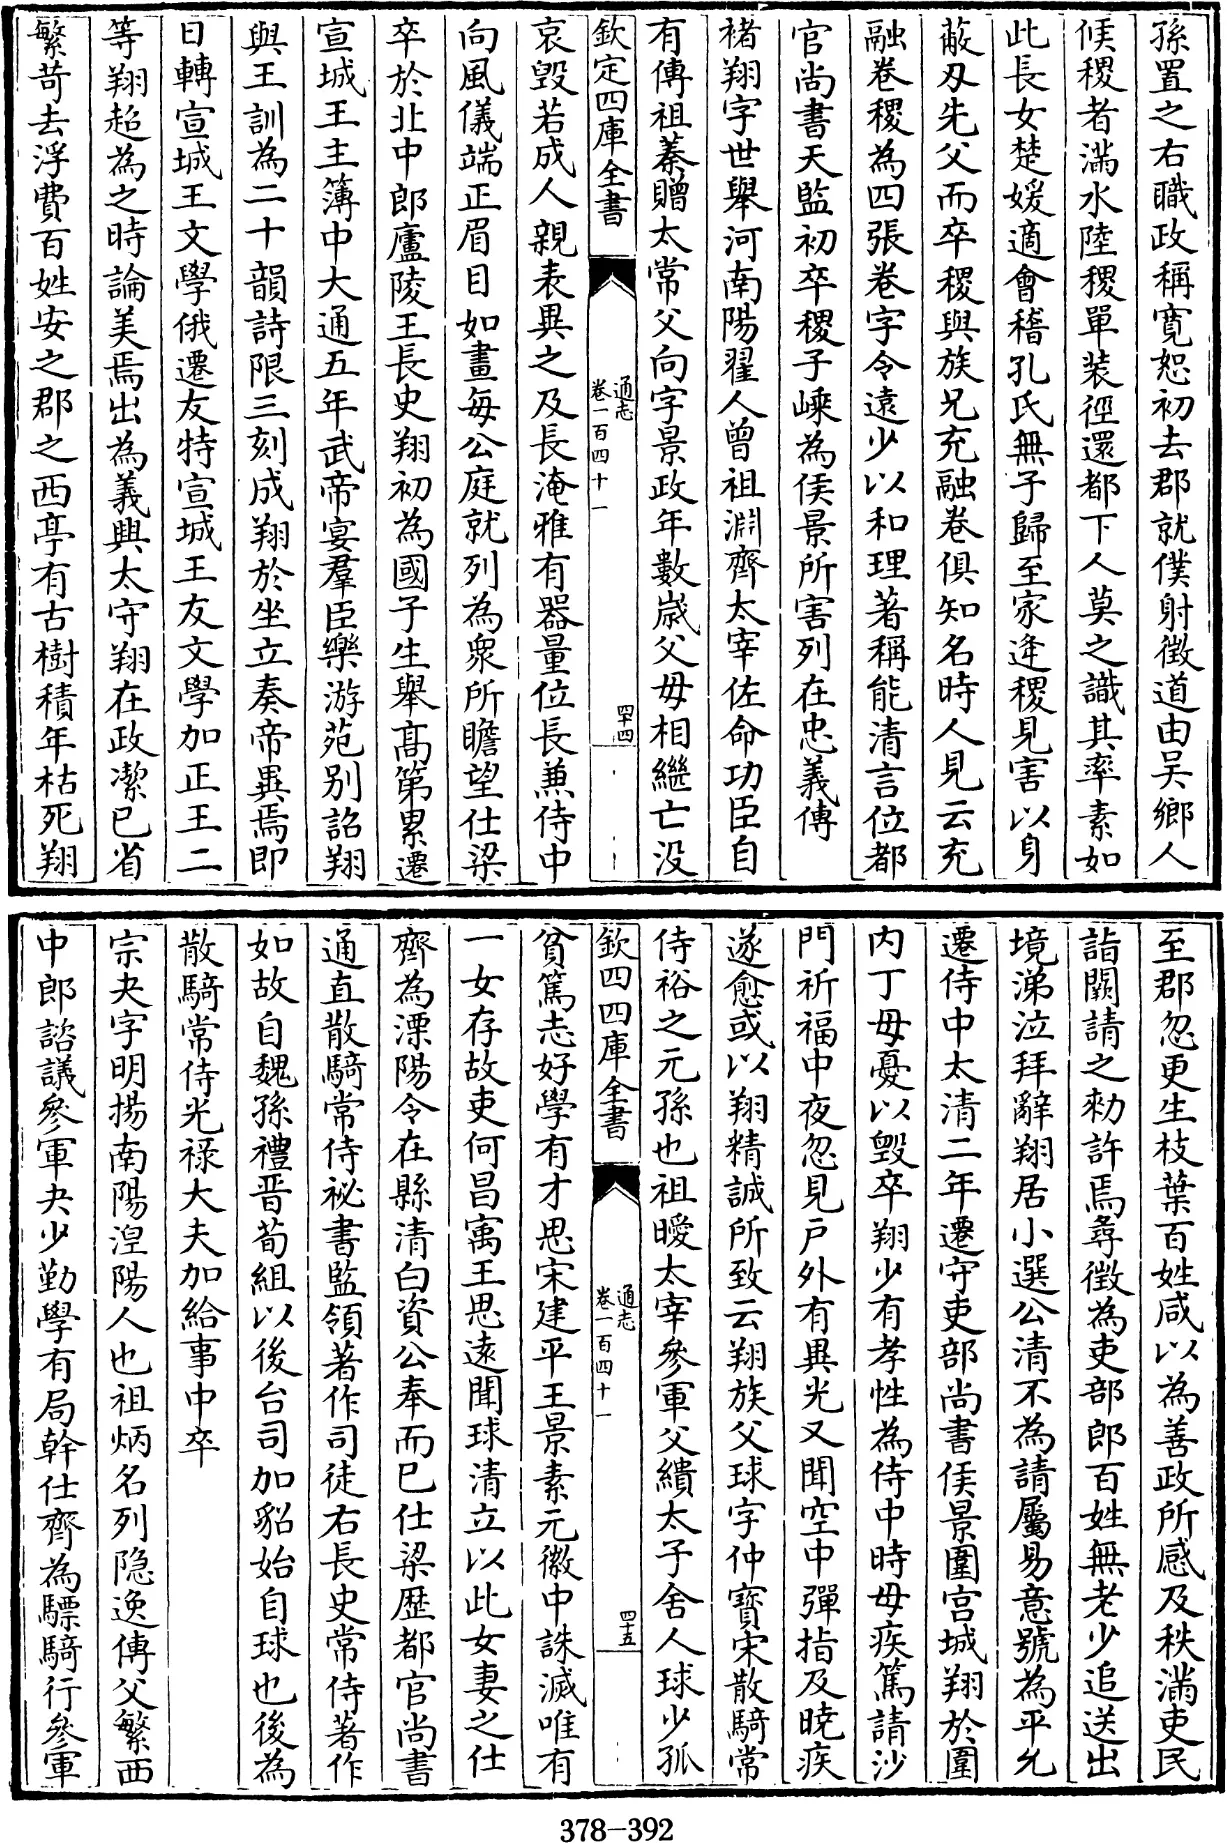 孫置之右職政稱寛恕初去郡就僕射徴道由吴鄉人
候稷者滿水陸稷單装徑還都下人莫之識其率素如
此長女楚媛適會稽孔氏無子歸至家逄稷見害以身
蔽刄先父而卒稷與族兄充融卷俱知名時人見云充
融卷稷為四張卷字令遠少以和理著稱能清言位都
官尚書天監初卒稷子嵊為侯景所害列在忠義傳
褚翔字世舉河南陽翟人曾祖淵齊太宰佐命功臣自
有傳祖蓁贈太常父向字景政年數嵗父母相繼亡没
欽定四庫全書
通志
卷一百四十一
四十四
哀毁若成人親表異之及長淹雅有器量位長兼侍中
向風儀端正眉目如畫每公庭就列為衆所瞻望仕梁
卒於北中郎廬陵王長史翔初為國子生舉髙第累遷
宣城王主簿中大通五年武帝宴羣臣樂游苑别詔翔
與王訓為二十韻詩限三刻成翔於坐立奏帝異焉即
日轉宣城王文學俄遷友特宣城王友文學加正王二
等翔超為之時論美焉出為義興太守翔在政潔已省
繁苛去浮費百姓安之郡之西亭有古樹積年枯死翔
至郡忽更生枝葉百姓咸以為善政所感及秩滿吏民
詣闕請之勑許焉尋徴為吏部郎百姓無老少追送出
境涕泣拜辭翔居小選公清不為請屬易意號為平允
遷侍中太清二年遷守吏部尚書侯景圍宫城翔於圍
内丁母憂以毁卒翔少有孝性為侍中時母疾篤請沙
門祈福中夜忽見戸外有異光又聞空中彈指及曉疾
遂愈或以翔精誠所致云翔族父球字仲寳宋散騎常
侍裕之元孫也祖曖太宰參軍父繢太子舍人球少孤
欽四四庫全書
通志
卷一百四十一
四十五
貧篤志好學有才思宋建平王景素元徽中誅滅唯有
一女存故吏何昌㝢王思遠聞球清立以此女妻之仕
齊為溧陽令在縣清白資公奉而巳仕梁歴都官尚書
通直散騎常侍祕書監領著作司徒右長史常侍著作
如故自魏孫禮晋荀組以後台司加貂始自球也後為
散騎常侍光禄大夫加給事中卒
宗夬字明揚南陽湼陽人也祖炳名列隐逸傳父繁西
中郎諮議參軍夬少勤學有局幹仕齊為驃騎行參軍
378-392